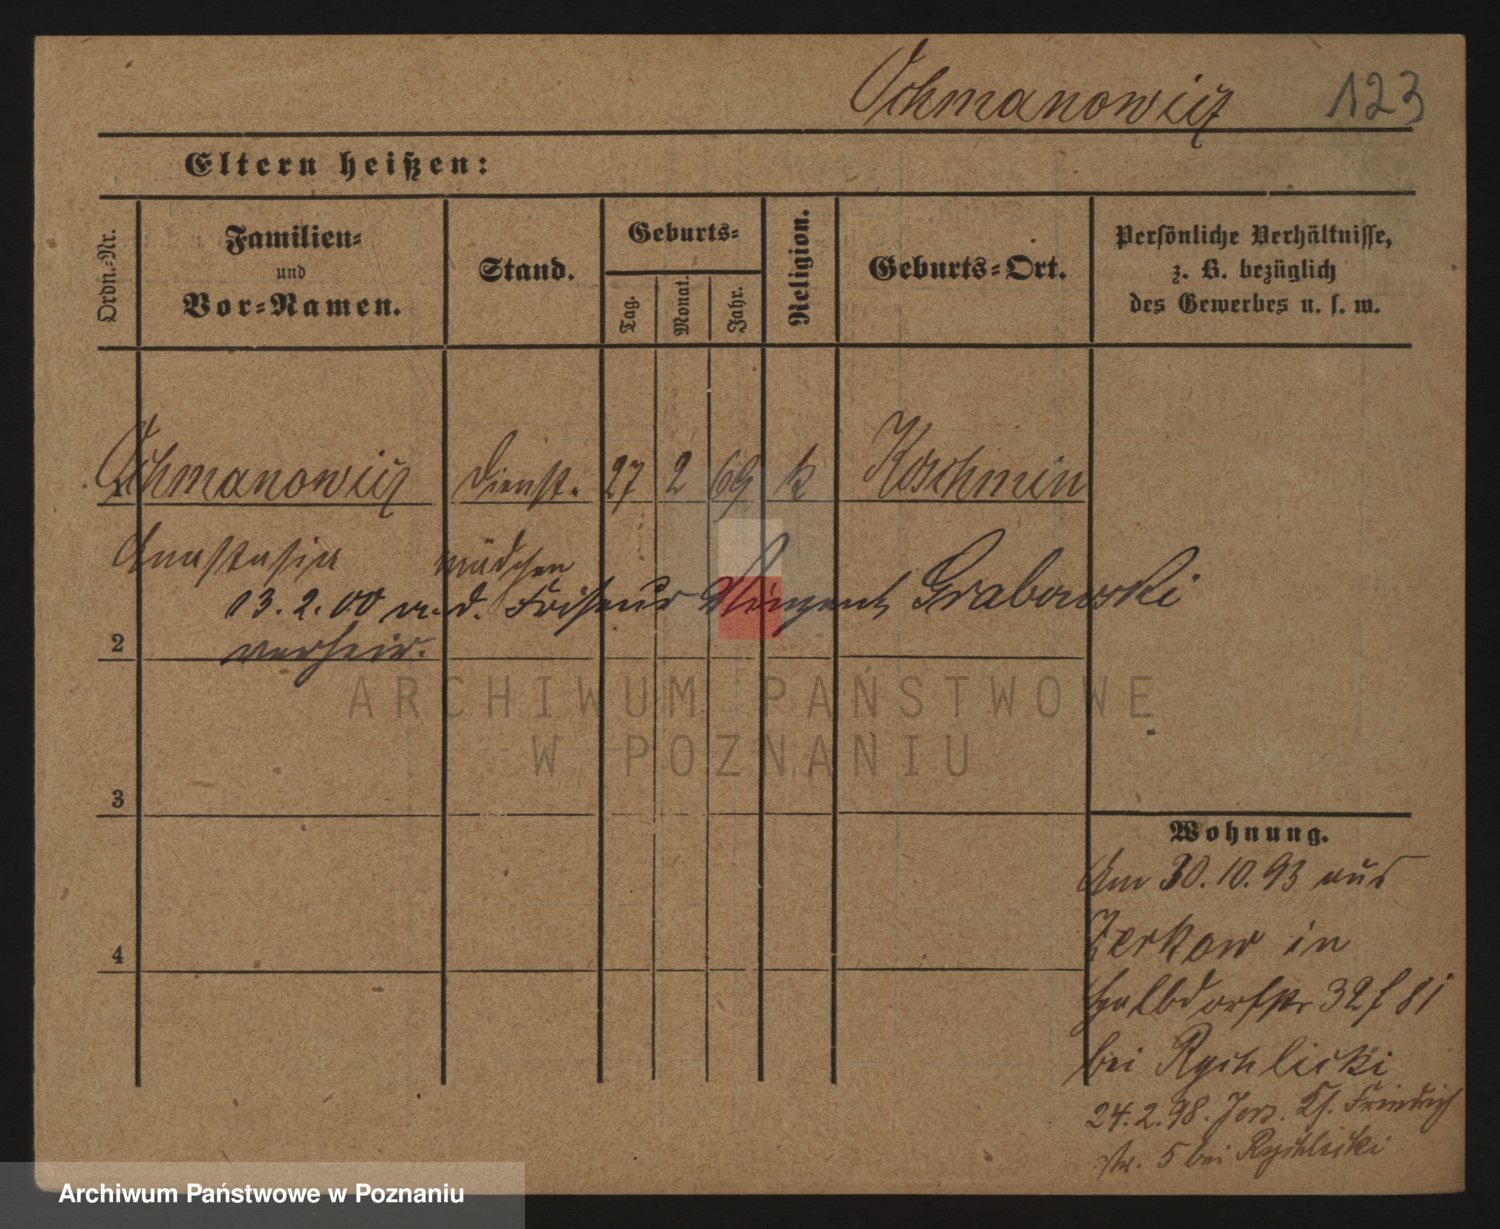 Ochmanowicz 123
Eltern heißen:
Ordn.-Nr.
Familien-
und
Vor-Namen.
Stand.
Geburts-
Tag.
Monat.
Jahr.
Religion.
Geburts-Ort.
Persönliche Verhältnisse,
z. B. bezüglich
des Gewerbes u. s. w.
1 Ochmanowicz Dienst- 27 2 69 k Koschmin
Anastasia mädchen
13.2.00 m. d. Friseur Vinzent Grabowski
2 verheir.
3
4
Wohnung.
Am 30.10.93 aus
Zerkow in
Halbdorfstr 32
bei Rychlicki
24.2.98. Friedrich
str. 5 bei Rychlicki
ARCHIWUM PAŃSTWOWE
W POZNANIU
Archiwum Państwowe w Poznaniu